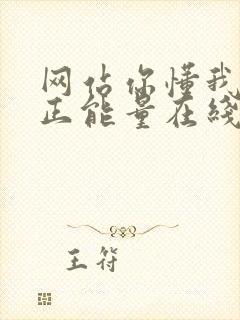 网站你懂我
正能量在线
王符